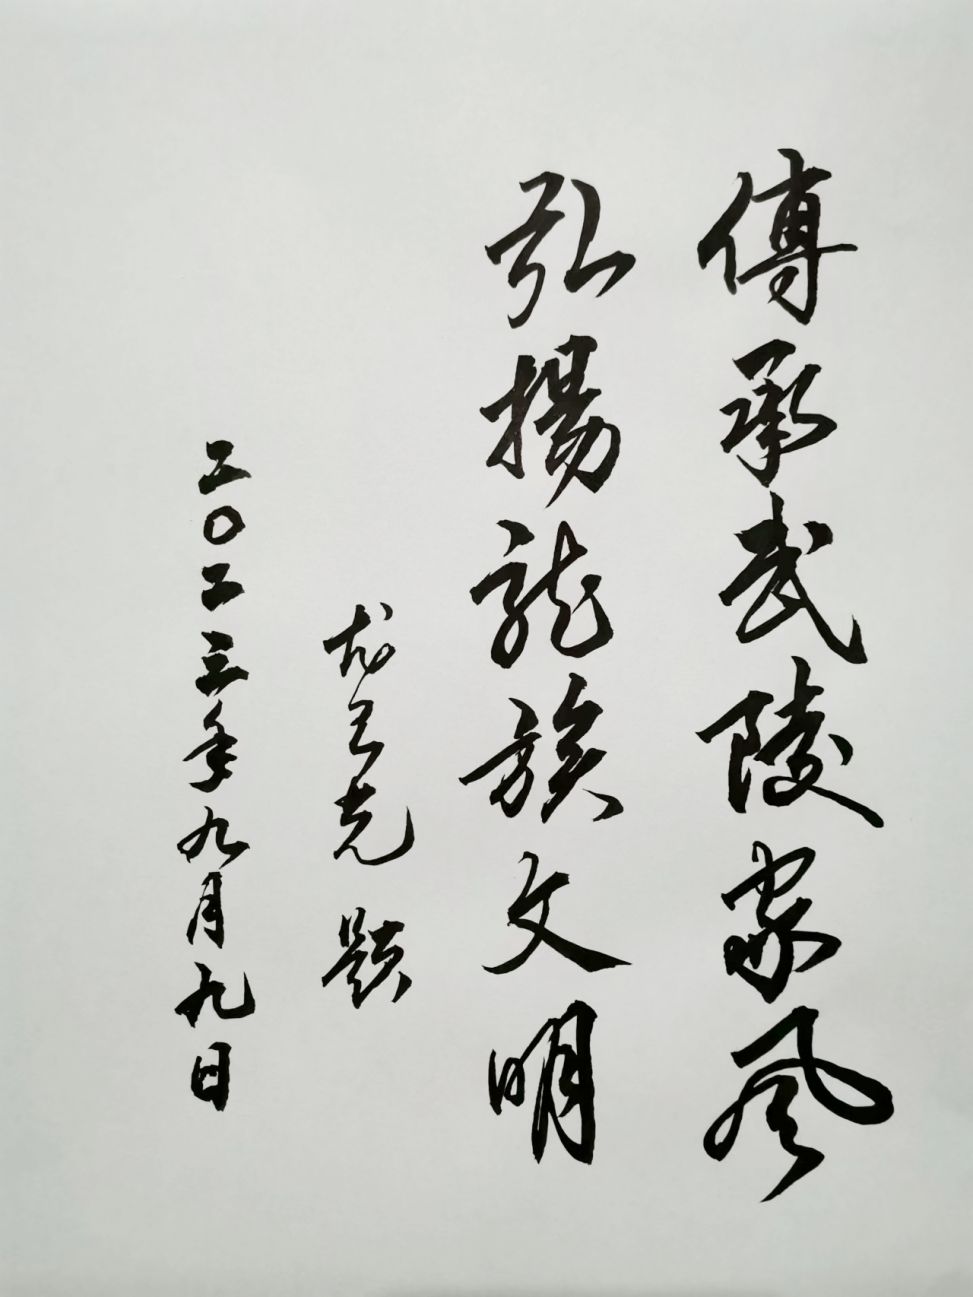 傳承武陵家風
弘揚龍族文明
龙云光 题
二〇二三年九月九日